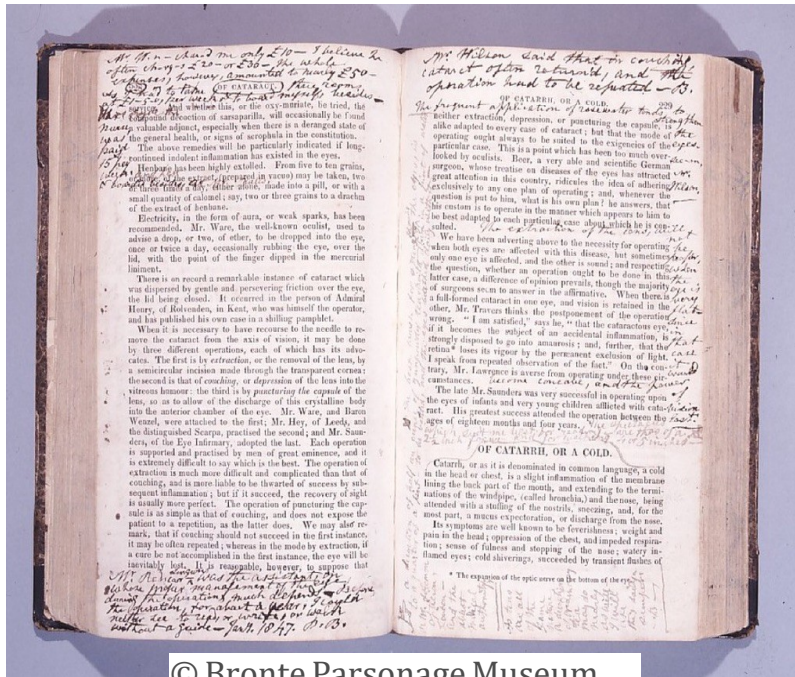 Mr. W.n - charg'd me only £10 - I believe he
often charges £20 - or £30 - the whole
expenses, however, amounted to nearly £50 -
as I had to take
OF CATARACT.
servion. And whether this, or the oxy-muriate, be tried, the
compound decoction of sarsaparilla, will occasionally be found
a valuable adjunct, especially when there is a deranged state of
the general health, or signs of scrophula in the constitution.
The above remedies will be particularly indicated if long-
continued indolent inflammation has existed in the eyes.
Henbane has been highly extolled. From five to ten grains,
of the extract, (prepared in vacuo) may be taken, two
or three times a day, either alone, made into a pill, or with a
small quantity of calomel; say, two or three grains to a drachm
of the extract of henbane.
Electricity, in the form of aura, or weak sparks, has been
recommended. Mr. Ware, the well-known oculist, used to
advise a drop, or two, of ether, to be dropped into the eye,
once or twice a day, occasionally rubbing the eye, over the
lid, with the point of the finger dipped in the mercurial
liniment.
There is on record a remarkable instance of cataract which
was dispersed by gentle and persevering friction over the eye,
the lid being closed. It occurred in the person of Admiral
Henry, of Rolvenden, in Kent, who was himself the operator,
and has published his own case in a shilling pamphlet.
When it is necessary to have recourse to the needle to re-
move the cataract from the axis of vision, it may be done
by three different operations, each of which has its advo-
cates. The first is by extraction, or the removal of the lens, by
a semicircular incision made through the transparent cornea:
the second is that of couching, or depression of the lens into the
vitreous humour: the third is by puncturing the capsule of
the lens, so as to allow of the discharge of this crystalline body
into the anterior chamber of the eye. Mr. Ware, and Baron
Wenzel, were attached to the first; Mr. Hey, of Leeds, and
the distinguished Scarpa, practised the second; and Mr. Saun-
ders, of the Eye Infirmary, adopted the last. Each operation
is supported and practised by men of great eminence, and it
is extremely difficult to say which is the best. The operation of
extraction is much more difficult and complicated than that of
couching, and is more liable to be thwarted of success by sub-
sequent inflammation; but if it succeed, the recovery of sight
is usually more perfect. The operation of puncturing the cap-
sule is as simple as that of couching, and does not expose the
patient to a repetition, as the latter does. We may also re-
mark, that if couching should not succeed in the first instance,
it may be often repeated; whereas in the mode by extraction, if
a cure be not accomplished in the first instance, the eye will be
inevitably lost. It is reasonable, however, to suppose that
was the assistant on
whose proper management of the eye
during the operation, much depend - Before
the operation, for about a year, I could
neither see to read, or write, or walk
without a guide - Jan. 1847. P. B.
Mr. Wilson said that in couching,
cataract often return'd, and the
operation had to be repeated - B.
OF CATARRH, OR A COLD. 229
The frequent application of rosewater tends to
strengthen the eyes.
neither extraction, depression, or puncturing the capsule, is
alike adapted to every case of cataract; but that the mode of
operating ought always to be suited to the exigencies of the
particular case. This is a point which has been too much over-
looked by oculists. Beer, a very able and scientific German
surgeon, whose treatise on diseases of the eyes has attracted
great attention in this country, ridicules the idea of adhering
exclusively to any one plan of operating; and, whenever the
question is put to him, what is his own plan? he answers, that
his custom is to operate in the manner which appears to him to
be best adapted to each particular case about which he is con-
sulted.
The extraction of the lens, will
We have been adverting above to the necessity for operating
when both eyes are affected with this disease, but sometimes
only one eye is affected, and the other is sound; and respecting
the question, whether an operation ought to be done in this
latter case, a difference of opinion prevails, though the majority
of surgeons seem to answer in the affirmative. When there is
a full-formed cataract in one eye, and vision is retained in the
other, Mr. Travers thinks the postponement of the operation
wrong. "I am satisfied," says he, "that the cataractous eye,
if it becomes the subject of an accidental inflammation, is
strongly disposed to go into amaurosis; and, further, that the
retina* loses its vigour by the permanent exclusion of light.
I speak from repeated observation of the fact." On the con-
trary, Mr. Lawrence is averse from operating under these cir-
cumstances.
become concave, and the power of
The late Mr. Saunders was very successful in operating upon
the eyes of infants and very young children afflicted with cata-
ract. His greatest success attended the operation between the
ages of eighteen months and four years.
OF CATARRH, OR A COLD.
Catarrh, or as it is denominated in common language, a cold
in the head or chest, is a slight inflammation of the membrane
lining the back part of the mouth, and extending to the termi-
nations of the windpipe, (called bronchia,) and the nose, being
attended with a stuffing of the nostrils, sneezing, and, for the
most part, a mucus expectoration, or discharge from the nose.
Its symptoms are well known to be feverishness; weight and
pain in the head; oppression of the chest, and impeded respira-
tion; sense of fulness and stopping of the nose; watery in-
flamed eyes; cold shiverings, succeeded by transient flushes of
* The expansion of the optic nerve on the bottom of the eye.
© Bronte Parsonage Museum